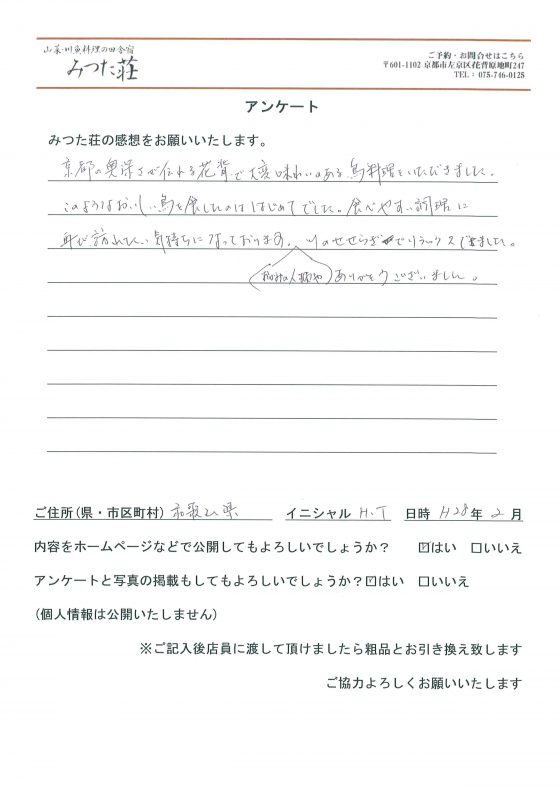 山菜・川魚料理の田舎宿
みつた荘
ご予約・お問合せはこちら
〒601-1102 京都市左京区花背原地町247
TEL: 075-746-0125
アンケート
みつた荘の感想をお願いいたします。
京都の奥深さが伝わる花背で大変味わいのある鳥料理をいただきました。
このようなおいしい鳥を食したのははじめてでした。食べやすい調理に
訪れたい気持ちになっております。 のせせらぎでリラックスできました。
ありがとうございました。
ご住所(県・市区町村) 和歌山県 イニシャル H.T 日時 H28年 2月
内容をホームページなどで公開してもよろしいでしょうか? ☑はい □いいえ
アンケートと写真の掲載もしてもよろしいでしょうか?☑はい □いいえ
(個人情報は公開いたしません)
※ご記入後店員に渡して頂けましたら粗品とお引き換え致します
ご協力よろしくお願いいたします